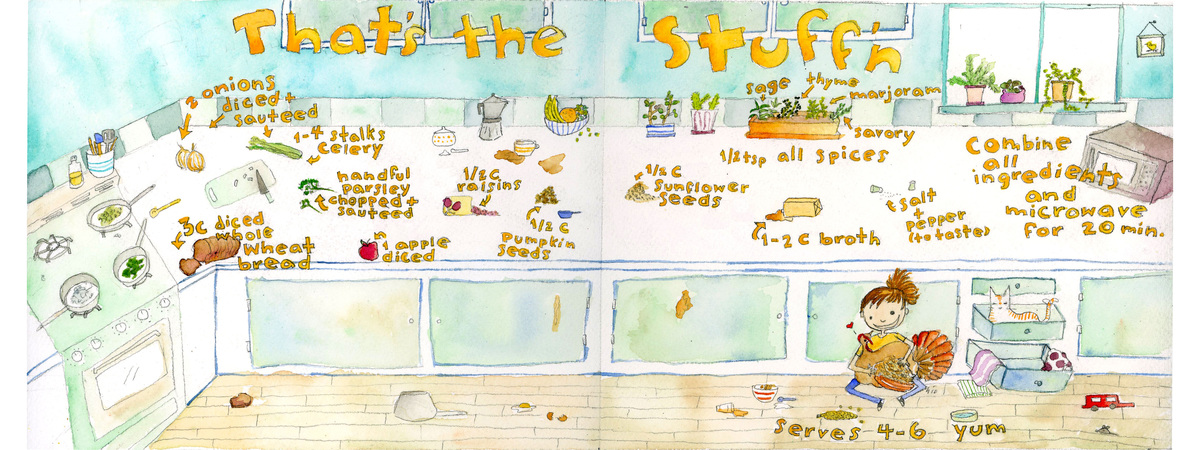 That's the Stuff'n
2 onions
diced +
sauteed
1-4 stalks
celery
handful
parsley
chopped +
sauteed
1/2 c
raisins
3c diced
whole
wheat
bread
1 apple
diced
1/2 c
pumpkin
seeds
sage thyme
marjoram
savory
1/2 tsp all spices
1/2 c
sunflower
seeds
salt
+
pepper
(to taste)
1-2 c broth
Combine
all
ingredients
and
microwave
for 20 min.
serves 4-6 yum